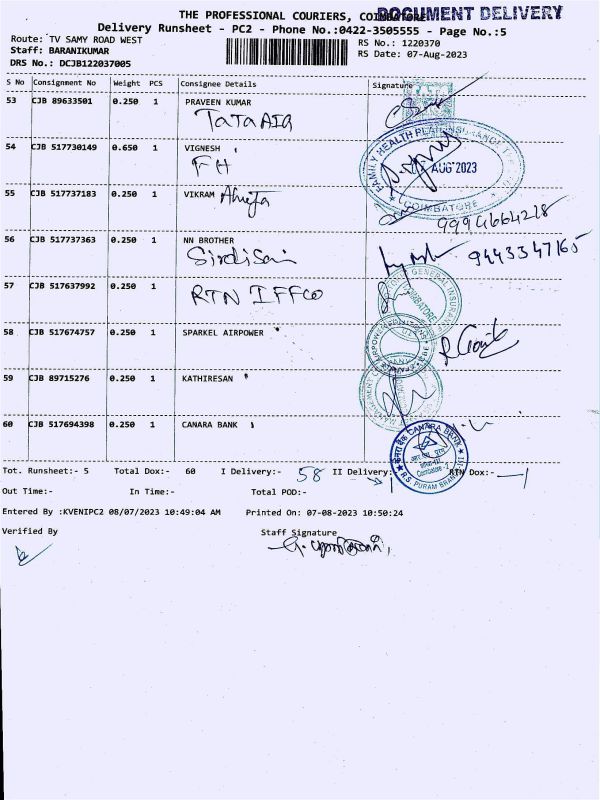 THE PROFESSIONAL COURIERS, COIMBATORE
DOCUMENT DELIVERY
Delivery Runsheet - PC2 - Phone No.:0422-3505555 - Page No.:5
Route: TV SAMY ROAD WEST
RS No.: 1220370
Staff: BARANIKUMAR
RS Date: 07-Aug-2023
DRS No.: DCJB122037005
S No Consignment No Weight PCS Consignee Details Signature
53 CJB 89633501 0.250 1 PRAVEEN KUMAR
TATA AIG
54 CJB 517730149 0.650 1 VIGNESH
FH
FAMILY HEALTH PLAN INSURANCE
AUG 2023
COIMBATORE
55 CJB 517737183 0.250 1 VIKRAM Ahuja
9994664218
56 CJB 517737363 0.250 1 NN BROTHER
Sirdi Sai
9443347165
57 CJB 517637992 0.250 1
RTN IFFCO
GENERAL INSURANCE
58 CJB 517674757 0.250 1 SPARKEL AIRPOWER
59 CJB 89715276 0.250 1 KATHIRESAN
60 CJB 517694398 0.250 1 CANARA BANK
CANARA BANK
Coimbatore - 2
R S PURAM BRANCH
Tot. Runsheet:- 5 Total Dox:- 60 I Delivery:- 58 II Delivery:- 1 RTN Dox:- 1
Out Time:- In Time:- Total POD:-
Entered By :KVENIPC2 08/07/2023 10:49:04 AM Printed On: 07-08-2023 10:50:24
Verified By Staff Signature